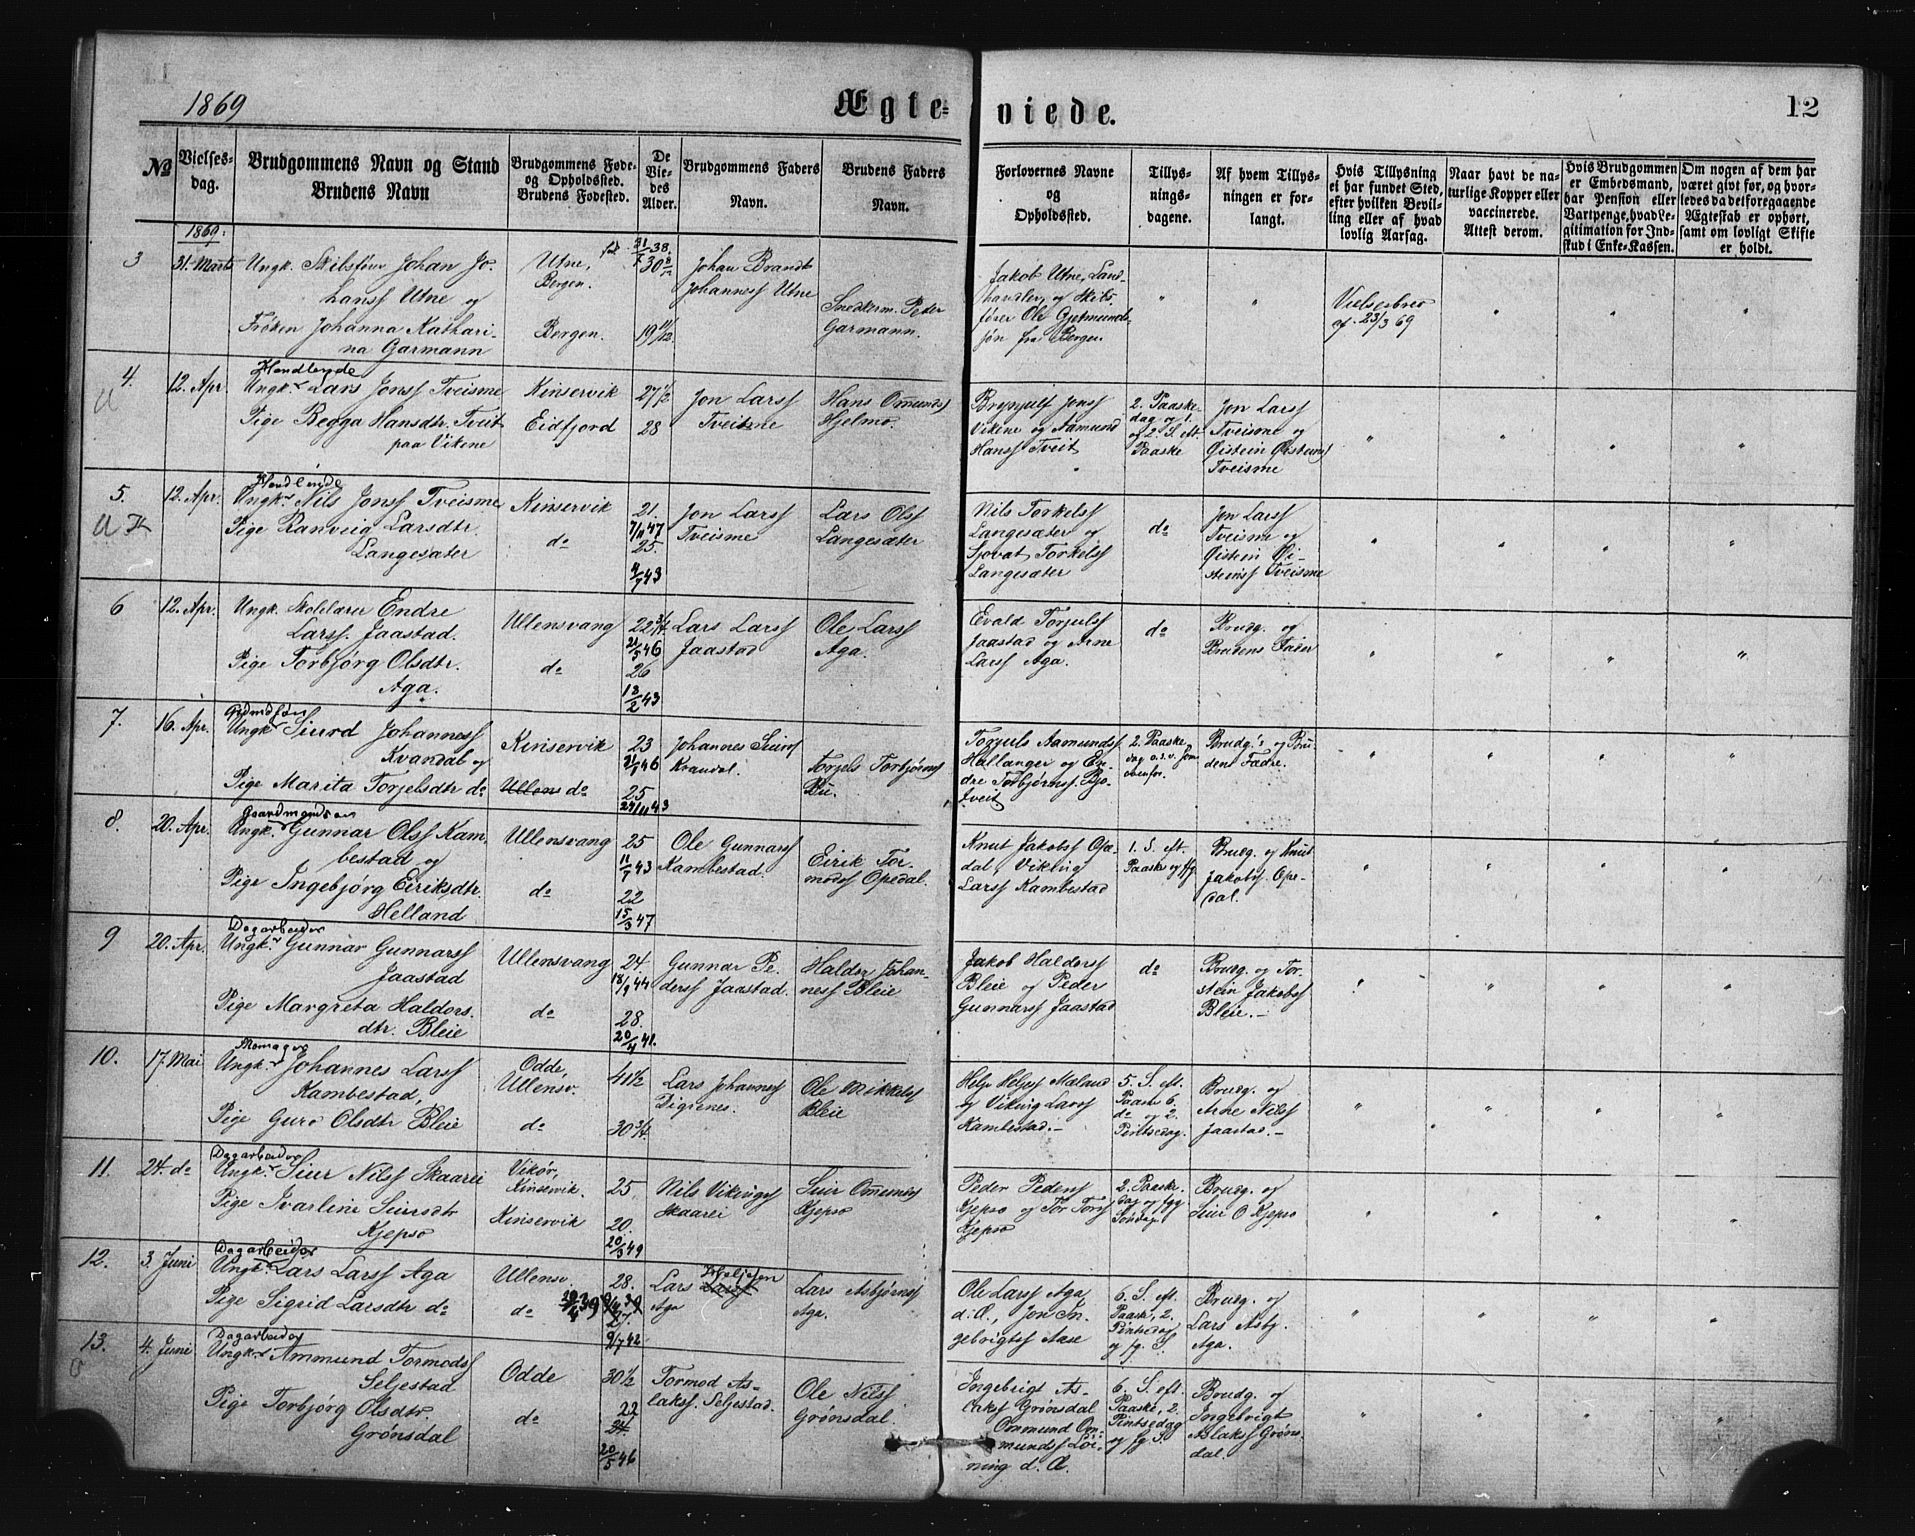 1869
Ægte=
viede.
12
No
Vielses-
dag.
Brudgommens Navn og Stand
Brudens Navn
Brudgommens Føde-
og Opholdssted.
Brudens Fødested.
De
Vie-
des
Alder.
Brudgommens Faders
Navn.
Brudens Faders
Navn.
Forlovernes Navne
og
Opholdssted.
Tillys-
nings-
dagene.
Af hvem Tillys-
ningen er for-
langt.
Hvis Tillysning
ei har fundet Sted,
efter hvilken Bevil-
ling eller af hvad
lovlig Aarsag.
Naar havt de na-
turlige Kopper eller
vaccinerede.
Attest derom.
Hvis Brudgommen
er Embedsmand,
har Pension eller
Vartpenge, hvad Le-
gitimation for Ind-
skud i Enke-Kassen.
Om nogen af dem har
været givt før, og hvor-
ledes da det foregaaende
Ægteskab er ophørt,
samt om lovligt Skifte
er holdt.
1869.
3
31. Marts
Ungk. Skibsfører Johan Jo-
hanss Utne og
Frøken Johanna Kathari-
na Garmann
Utne,
Bergen.
Bergen.
31/7 38.
30 8/12
19 11/12
Johan Brandt
Johanness Utne
Snedkerm. Peter
Garmann.
Jakob Utne, Land-
handler, og Skibs-
fører Ole Gjetmunds-
jøn fra Bergen.
Vielsesbrev
af 23/3 69
4.
U
12. Apr.
Handlende
Ungkr Lars Jonss Tveisme
Pige Begga Hansdtr. Tveit
paa Vikene
Kinservik
Eidfjord
27 1/2
28
Jon Larss
Tveisme
Hans Omunds
Hjelmo.
Brynjulf Jonss
Vikene og Aamund
Hanss Tveit
2. Paaske-
dag og 1.
og 2. S. eft.
Paaske
Jon Larss
Tveisme og
Øistein Øisteinss
Tveisme
5.
12. Apr.
Handlende
Ungkr Nils Jonss Tveisme
Pige Ranveig Larsdtr.
Langesæter
Kinservik
do
21.
7/11 47
25.
4/7 43
Jon Larss
Tveisme
Lars Olss
Langesæter
Nils Torkelss
Langesæter og
Sjovat Torkelss
Langesæter
do
Jon Larss
Tveisme og
Øistein Øi-
steinss Tveisme
6
12. Apr.
Ungk. Skolelærer Endre
Larss. Jaastad.
Pige Torbjørg Olsdtr.
Aga.
Ullensvang
do
22 3/4
21/5 46
26
12/2 43
Lars Larss
Jaastad
Ole Larss
Aga.
Evald Torjulss
Jaastad og Arne
Larss Aga.
do
Brudg. og
Brudens Fader
7.
16. Apr.
Ungkr Siurd Johanness
Kvandal og
Pige Marita Torjelsdtr do
Kinservik
Ullens do
23
21/1 46
25
24/11 43
Johannes Siurss
Kvandal.
Torjels Torbjørnss
Bu.
Torjuls Aamundss
Hallanger og En-
dre Torbjørnss. Bjo-
tveit
2. Paaske-
dag o.s.v. som
ovenfor.
Brudg.s og Bru-
dens Fædre.
8.
20. Apr.
Gaardmandssøn
Ungk. Gunnar Olss Kam-
bestad og
Pige Ingebjørg Eiriksdtr.
Helland
Ullensvang
do
25
11/7 43
22
15/3 47
Ole Gunnarss
Kambestad.
Eirik Tor-
modss Opedal.
Knut Jakobss Ope-
dal, Viking
Larss Kambestad
1. S. eft.
Paaske og ffg.
Brudg. og Knut
Jakobss. Ope-
dal.
9
20. Apr.
Dagarbeider
Ungk.r Gunnar Gunnarss
Jaastad
Pige Margreta Haldors-
dtr. Bleie
Ullensvang
do
24.
18/9 44
28.
20/4 41.
Gunnar Pe-
derss Jaastad.
Haldor Johan-
ness Bleie
Jakob Haldorss
Bleie og Peder
Gunnarss Jaastad
do
Brudg. og Tor-
stein Jakobss
Bleie.-
10.
17. Mai
Skomager
Ungkr Johannes Larss
Kambestad,
Pige Guro Olsdtr Bleie
Odde,
Ullensv.
do
41 1/2
30 3/4
Lars Johanness
Digrenes.
Ole Mikkelss
Bleie
Helje Heljess Mæland
og Viking Larss
Kambestad.-
5. S. eft.
Paaske 6.
do og 2.
Pintsedag.
Brudg. og
Arne Nilss
Jaastad.-
11.
24. do
Dagarbeider
Ungk.r Siur Nilss Skaarei
Pige Ivarline Siursdtr
Kjepso
Vikør,
Kinservik.
Kinservik
25.
20.
20/3 49
Nils Vikingss
Skaarei
Siur Omundss
Kjepso
Peder Pederss
Kjepso og Tor Torss
Kjepso
2. Paaske-
dag og fgg
Søndag
Brudg. og
Siur O Kjepso
12.
3. Juni
Dagarbeider
Ungk. Lars Larss Aga
Pige Sigrid Larsdtr do
Ullensv.
do
28.
27.
9/7 42
Lars Heljesen
Aga
Lars Asbjørnss
Aga.
Ole Larss Aga
d. Æ., Jon In-
gebrigtss Aase
6. S. eft.
Paaske, 2.
Pintsedag
og fg. S.
Brudg. og
Lars Asbj.
Aga.
13.
4. Juni
Dagarbeider
Ungkr Ammund Tormodss
Seljestad
Pige Torbjørg Olsdtr.
Grønsdal
Odde
do
30 1/2
22
24
20/5 46
Tormod As-
lakss. Seljestad.
Ole Nilss
Grønsdal.
Ingebrigt As-
lakss Grønsdal
Ommund Om-
mundss Løi-
ning d. Æ.
6. S. eft.
Paaske, 2.
Pintsedag
og fg S.
Brudg. og
Ingebrigt
Aslakss Grøns-
dal.